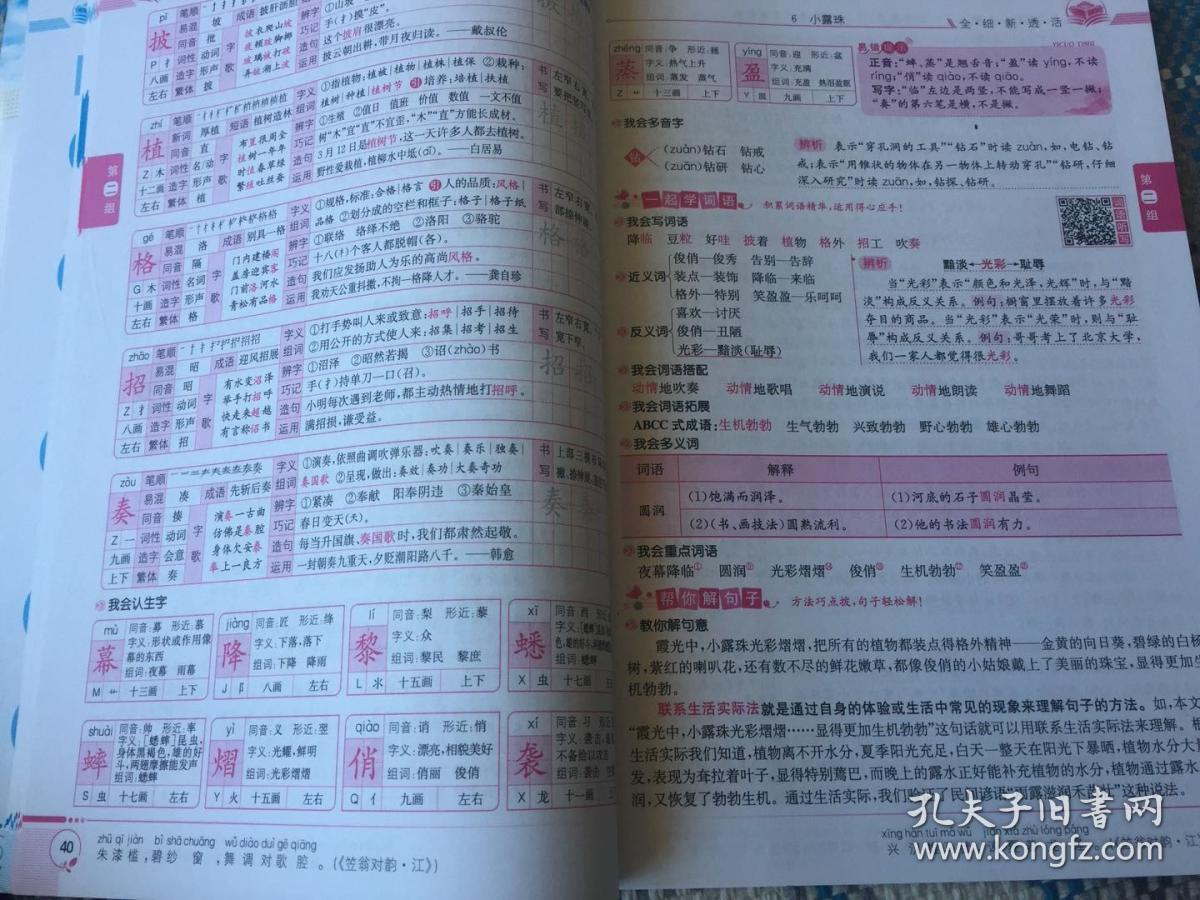 第二组
pī
披
P 扌
八画
左右
笔顺
易混 坡
同音 批
词性 动词
造字 形声
繁体 披
成语 披肝沥胆
字歌
坡衣爬山坡
玻璃放打破
辨字
手(扌)摸“皮”。
造句 这个披肩很漂亮。
运用 披云朝出耕,带月夜归读。——戴叔伦
zhí
植
Z 木
十二画
左右
笔顺
新词 厚植
同音 直
词性 名/动
造字 形声
繁体 植
短语 植树造林
字歌
布置很周全
植树一年年
时值春草绿
繁殖吐丝蚕
字义组词 ①指植物:植被|植物|植株|植保 ②栽种:
植树|种植|植树节 引培养:培植|扶植
辨字 ①生殖 ②值日 值班 价值 数值 一文不值
巧记 树“木”宜“直”不宜歪,“木”“直”方能长成材。
造句 3月12日是植树节,这一天许多人都去植树。
运用 野性爱栽植,植柳水中坻(dǐ)。——白居易
书写 左窄右宽,
植
gé
格
G 木
十画
左右
笔顺
易混 洛
同音 隔
词性 名词
造字 形声
繁体 格
成语 别具一格
字歌
门内建楼阁
盖房迎宾客
门前洛河水
青松有品格
字义组词 ①规格,标准:合格|格言 引人的品质:风格|
品格 ②划分成的空栏和框子:格子|格子纸
辨字 ①联络 络绎不绝 ②洛阳 ③骆驼
巧记 十八(木)个客人都脱帽(各)。
造句 我们应发扬助人为乐的高尚风格。
运用 我劝天公重抖擞,不拘一格降人才。——龚自珍
书写 左窄右宽,
格
zhāo
招
Z 扌
八画
左右
笔顺
易混 昭
同音 昭
词性 动词
造字 形声
繁体 招
成语 迎风招展
字歌
有水变沼泽
举手打招呼
快走来超越
有言称诏书
字义组词 ①打手势叫人来或致意:招呼|招手|招待
②用公开的方式使人来:招集|招考|招生
辨字 ①沼泽 ②昭然若揭 ③诏(zhào)书
巧记 手(扌)持单刀一口(召)。
造句 小明每次遇到老师,都主动热情地打招呼。
运用 满招损,谦受益。
书写 左窄右宽,
宽下窄。
招
zòu
奏
Z 一
九画
上下
笔顺
易混 凑
同音 揍
词性 动词
造字 会意
繁体 奏
成语 先斩后奏
字歌
演奏一古曲
仿佛是秦腔
身体欠安泰
奉上一良方
字义组词 ①演奏,依照曲调吹弹乐器:吹奏|奏乐|独奏|
奏国歌 ②呈现,做出:奏效|奏功|大奏奇功
辨字 ①紧凑 ②奉献 阳奉阴违 ③秦始皇
巧记 春日变天(夭)。
造句 每当升国旗、奏国歌时,我们都肃然起敬。
运用 一封朝奏九重天,夕贬潮阳路八千。——韩愈
书写
奏
我会认生字
mù 幕 同音:募 形近:慕
字义:形状或作用像幕的东西
组词:夜幕 雨幕
M 艹 十三画 上下
jiàng 降 同音:匠 形近:绛
字义:下落,落下
组词:下降 降雨
J 阝 八画 左右
lí 黎 同音:梨 形近:藜
字义:众
组词:黎民 黎庶
L 水 十五画 上下
xī 蟋 同音:西
组词:蟋蟀
X 虫 十七画
shuài 蟀 同音:帅 形近:率
字义:[蟋蟀]昆虫,身体黑褐色,雄的好斗,两翅摩擦能发声
组词:蟋蟀
S 虫 十七画 左右
yì 熠 同音:义 形近:翌
字义:光耀,鲜明
组词:光彩熠熠
Y 火 十五画 左右
qiào 俏 同音:诮 形近:悄
字义:漂亮,相貌美好
组词:俏丽 俊俏
Q 亻 九画 左右
xí 袭 同音:习
X 龙 十一画
40
zhū qī jiàn bì shā chuāng wǔ diào duì gē qiāng
朱漆槛,碧纱窗,舞调对歌腔。(《笠翁对韵·江》)
6 小露珠
全·细·新·透·活
zhēng 蒸 同音:争 形近:拯
字义:热气上升
组词:蒸发 蒸气
Z 艹 十三画 上下
yíng 盈 同音:迎 形近:盆
字义:充满
组词:充盈 热泪盈眶
Y 皿 九画 上下
易错提示
YICUO TISHI
正音:“蟀、蒸”是翘舌音;“盈”读yíng,不读
ríng;“俏”读qiào,不读qiǎo。
写字:“临”左边是两竖,不能写成一竖一撇;
“奏”的第六笔是横,不是撇。
我会多音字
钻
(zuàn)钻石 钻戒
(zuān)钻研 钻心
辨析 表示“穿孔洞的工具”“钻石”时读zuàn,如,电钻、钻
戒;表示“用锥状的物体在另一物体上转动穿孔”“钻研,仔细
深入研究”时读zuān,如,钻探、钻研。
第二组
一起学词语 积累词语精华,运用得心应手!
词语听写
我会写词语
降临 豆粒 好哇 披着 植物 格外 招工 吹奏
近义词
俊俏—俊秀 告别—告辞
装点—装饰 降临—来临
格外—特别 笑盈盈—乐呵呵
反义词
喜欢—讨厌
俊俏—丑陋
光彩—黯淡(耻辱)
辨析 黯淡←光彩→耻辱
当“光彩”表示“颜色和光泽,光辉”时,与“黯
淡”构成反义关系。例句:橱窗里摆放着许多光彩
夺目的商品。当“光彩”表示“光荣”时,则与“耻
辱”构成反义关系。例句:哥哥考上了北京大学,
我们一家人都觉得很光彩。
我会词语搭配
动情地吹奏 动情地歌唱 动情地演说 动情地朗读 动情地舞蹈
我会词语拓展
ABCC式成语:生机勃勃 生气勃勃 兴致勃勃 野心勃勃 雄心勃勃
我会多义词
词语 解释 例句
圆润
(1)饱满而润泽。 (1)河底的石子圆润晶莹。
(2)(书、画技法)圆熟流利。 (2)他的书法圆润有力。
我会重点词语
夜幕降临 圆润 光彩熠熠 俊俏 生机勃勃 笑盈盈
帮你解句子 方法巧点拨,句子轻松解!
教你解句意
霞光中,小露珠光彩熠熠,把所有的植物都装点得格外精神——金黄的向日葵,碧绿的白杨
树,紫红的喇叭花,还有数不尽的鲜花嫩草,都像俊俏的小姑娘戴上了美丽的珠宝,显得更加生
机勃勃。
联系生活实际法就是通过自身的体验或生活中常见的现象来理解句子的方法。如,本文
“霞光中,小露珠光彩熠熠……显得更加生机勃勃”这句话就可以用联系生活实际法来理解。
生活实际我们知道,植物离不开水分,夏季阳光充足,白天一整天在阳光下暴晒,植物水分大
发,表现为耷拉着叶子,显得特别蔫巴,而晚上的露水正好能补充植物的水分,植物通过露水
润,又恢复了勃勃生机。通过生活实际,我们验证了民间谚语“雨露滋润禾苗壮”这种说法。
xìng hàn tuī mǎ wǔ
孔夫子旧书网
www.kongfz.com